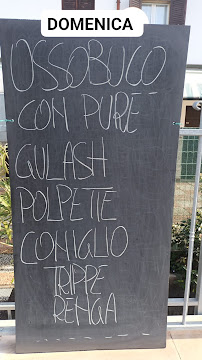 DOMENICA
OSSOBUCO
CON PURE
GULASH
POLPETE
CONIGLIO
TRIPPE
RENGA